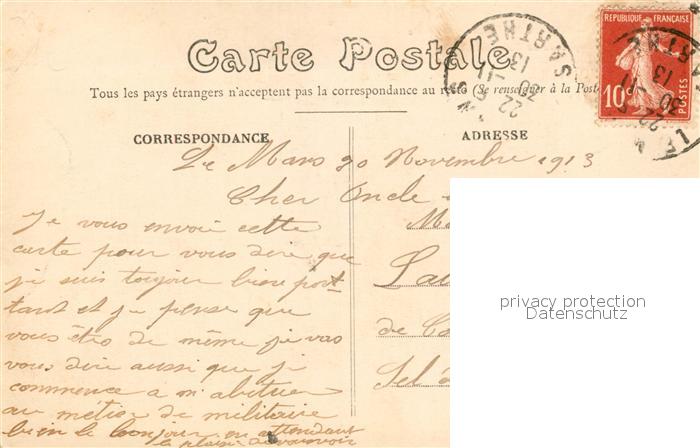 Carte Postale
Tous les pays étrangers n'acceptent pas la correspondance au recto (Se renseigner à la Poste
CORRESPONDANCE
ADRESSE
RÉPUBLIQUE FRANÇAISE
10c
POSTES
SARTHE
22 30
30 -11
13
SARTHE
22
30 -11
13
Le Mans 30 Novembre 1913
Cher Oncle
Je vous envoi cette
carte pour vous dire que
je suis toujour bien port
tant et je pense que
vous êtes de même je vas
vous dire aussi que je
commence a m'abituer
au métier de militaire
bien le bonjour en attendant
le plaisir de vous voir
de
privacy protection
Datenschutz